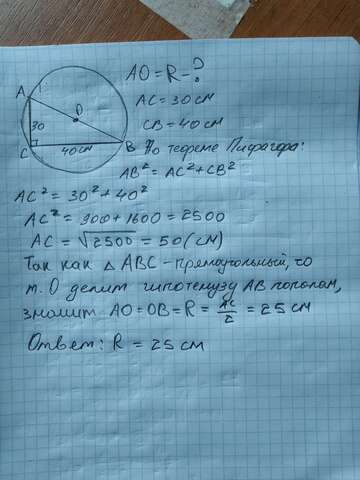 AO = R - ?
A
AC = 30 см
O
CB = 40 см
30
C
40 см
B
По теореме Пифагора:
AB² = AC² + CB²
AC² = 30² + 40²
AC² = 900 + 1600 = 2500
AC = √2500 = 50 (см)
Так как △ ABC - прямоугольный, то
т. O делит гипотенузу AB пополам,
значит AO = OB = R = AC/2 = 25 см
Ответ: R = 25 см